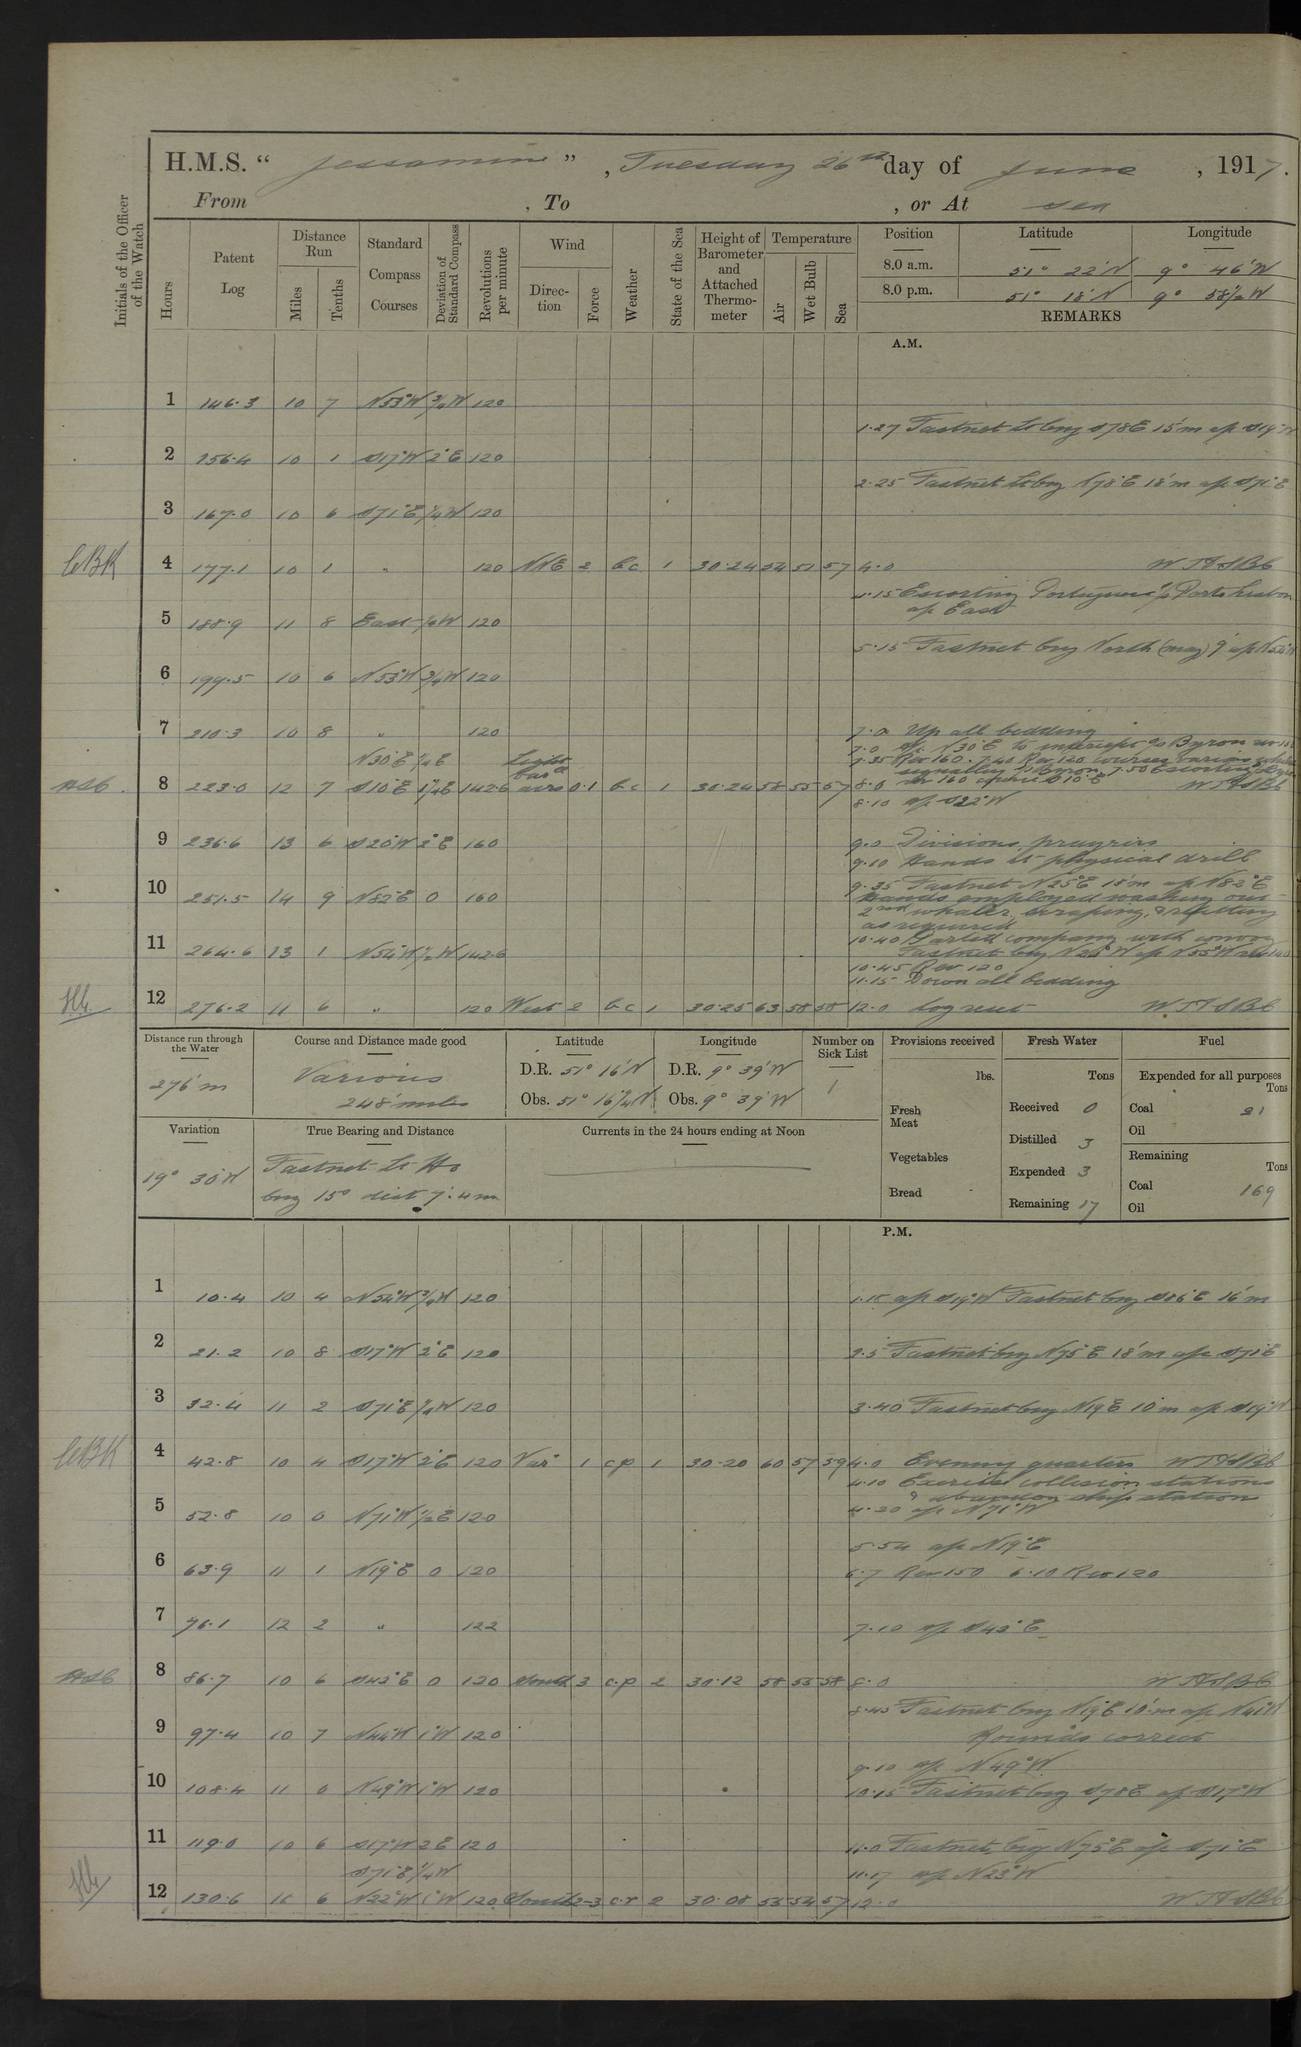 H.M.S. " Jessamine ", Tuesday 26th day of June, 1917.
From , To , or At sea
Initials of the Officer of the Watch
Hours
Patent Log
Distance Run
Miles
Tenths
Standard Compass Courses
Deviation of Standard Compass
Revolutions per minute
Wind
Direction
Force
Weather
State of the Sea
Height of Barometer and Attached Thermometer
Temperature
Air
Wet Bulb
Sea
Position Latitude Longitude
8.0 a.m. 51° 22'N 9° 46'W
8.0 p.m. 51° 18'N 9° 58½'W
REMARKS
A.M.
1 146.3 10 7 N53°W ¾W 120
1.27 Fastnet Lt brg S78E 15'm a/c S19°W
2 156.4 10 1 S17°W 2°E 120
2.25 Fastnet Lt brg N78°E 18'm a/c S71°E
3 167.0 10 6 S71°E ¼W 120
CBK 4 177.1 10 1 " 120 NNE 2 b.c. 1 30.24 54 51 57 4.0
4.15 Escorting Portuguese S/S Porto Lisbon
a/c East
5 188.9 11 8 East 120
5.15 Fastnet brg North (mag) 9' a/c
6 199.5 10 6 N53°W ¾W 120
7 210.3 10 8 " 120 7.0 Up all bedding
7.0 a/c N30°E to intercept S/S Byron
N30°E ¼E Light 7.35 Rev 160. 7.40 Rev 120 courses various whilst
signalling to Byron. 7.50 Escorting
8 223.0 12 7 S10°E 1¼E 142.6 airs 0.1 b.c 1 30.24 58 55 57 8.0 Rev 160 S10°E
8.10 a/c S22°W
9 236.6 13 6 S20°W 2°E 160 9.0 Divisions, prayers
9.10 Hands to physical drill
10 251.5 14 9 N82°E 0 160 9.35 Fastnet N25°E 18'm a/c N82°E
Hands employed washing out
2nd whaler, scraping, & refitting
as required
11 264.6 13 1 N54°W ½W 142.6 10.40 Parted company with convoy
Fastnet brg a/c N55°W
10.45 Rev 120
11.15 Down all bedding
12 276.2 11 6 " 120 West 2 b.c 1 30.25 63 58 58 12.0 log reset
Distance run through the Water
276'm
Course and Distance made good
Various
248 miles
Latitude
D.R. 51° 16'N
Obs. 51° 16¼'N
Longitude
D.R. 9° 39'W
Obs. 9° 39'W
Number on Sick List
1
Provisions received
lbs.
Fresh Meat
Vegetables
Bread
Fresh Water
Tons
Received 0
Distilled 3
Expended 3
Remaining 17
Fuel
Expended for all purposes
Tons
Coal 21
Oil
Remaining
Tons
Coal 169
Oil
Variation
19° 30'W
True Bearing and Distance
Fastnet Lt Ho
brg 15° dist 7'.4m
Currents in the 24 hours ending at Noon
P.M.
1 10.4 10 4 N54°W ¾W 120 1.15 a/c S19°W Fastnet brg S86°E 16'm
2 21.2 10 8 S17°W 2°E 120 2.5 Fastnet brg N75°E 18'm a/c S71°E
3 32.4 11 2 S71°E ¼W 120 3.40 Fastnet brg N19E 10'm a/c S19°W
CBK 4 42.8 10 4 S17°W 2°E 120 Var 1 c.p 1 30.20 60 57 59 4.0 Evening quarters
4.10 Exercise collision stations
& abandon ship station
5 52.8 10 0 N71°W ½E 120 4.20 a/c N71°W
5.54 a/c N19°E
6 63.9 11 1 N19°E 0 120 6.7 Rev 150 6.10 Rev 120
7 76.1 12 2 " 122 7.10 a/c S43°E
8 86.7 10 6 S43°E 0 120 South 3 c.p 2 30.12 58 55 58 8.0
8.45 Fastnet brg N19°E 10'm a/c N41°W
9 97.4 10 7 N44°W 1°W 120 Rounds correct
9.10 a/c N49°W
10 108.4 11 0 N49°W 1°W 120 10.15 Fastnet brg S78E a/c S17°W
11 119.0 10 6 S17°W 2E 120 11.0 Fastnet brg N75°E a/c S71°E
S71°E ¼W 11.17 a/c N23°W
12 130.6 11 6 N22°W 1°W 120 South 2-3 c.r 2 30.08 55 54 57 12.0